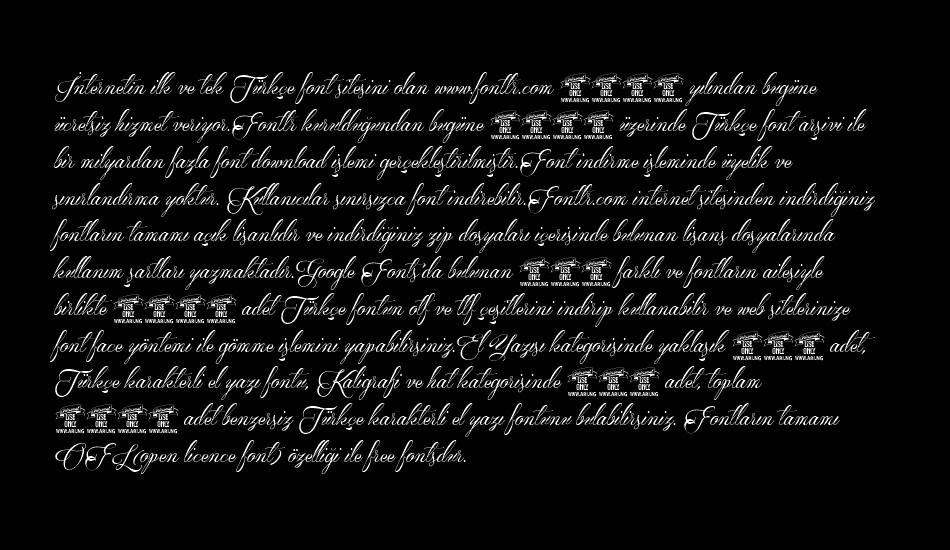 İnternetin ilk ve tek Türkçe font sitesini olan www.fonttr.com yılından bugüne
ücretsiz hizmet veriyor.Fonttr kurulduğundan bugüne üzerinde Türkçe font arşivi ile
bir milyardan fazla font download işlemi gerçekleştirilmiştir.Font indirme işleminde üyelik ve
sınırlandırma yoktur. Kullanıcılar sınırsızca font indirebilir.Fonttr.com internet sitesinden indirdiğiniz
fontların tamamı açık lisanlıdır ve indirdiğiniz zip dosyaları içerisinde bulunan lisans dosyalarında
kullanım şartları yazmaktadır.Google Fonts'da bulunan farklı ve fontların ailesiyle
birlikte adet Türkçe fontun otf ve ttf çeşitlerini indirip kullanabilir ve web sitelerinize
font face yöntemi ile gömme işlemini yapabilirsiniz.El Yazısı kategorisinde yaklaşık adet,
Türkçe karakterli el yazı fontu, Kaligrafi ve hat kategorisinde adet, toplam
adet benzersiz Türkçe karakterli el yazı fontunu bulabilirsiniz. Fontların tamamı
OFL(open licence font) özelliği ile free fontsdur.